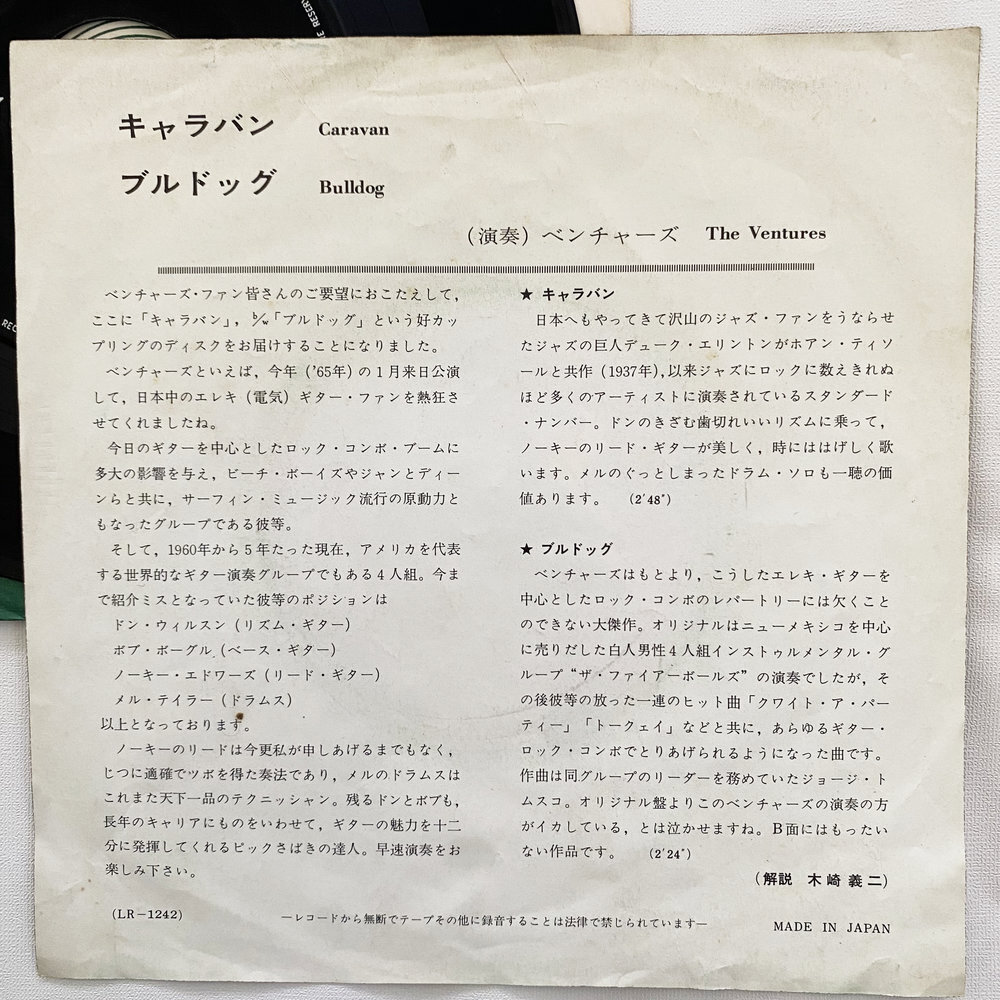 E RESER
REC
キャラバン Caravan
ブルドッグ Bulldog
(演奏) ベンチャーズ The Ventures
ベンチャーズ・ファン皆さんのご要望におこたえして,
ここに「キャラバン」, b/w「ブルドッグ」という好カッ
プリングのディスクをお届けすることになりました。
ベンチャーズといえば, 今年 ('65年) の1月来日公演
して, 日本中のエレキ (電気) ギター・ファンを熱狂さ
せてくれましたね。
今日のギターを中心としたロック・コンボ・ブームに
多大の影響を与え, ビーチ・ボーイズやジャンとディー
ンらと共に, サーフィン・ミュージック流行の原動力と
もなったグループである彼等。
そして, 1960年から5年たった現在, アメリカを代表
する世界的なギター演奏グループでもある4人組。今ま
で紹介ミスとなっていた彼等のポジションは
ドン・ウィルスン (リズム・ギター)
ボブ・ボーグル (ベース・ギター)
ノーキー・エドワーズ (リード・ギター)
メル・テイラー (ドラムス)
以上となっております。
ノーキーのリードは今更私が申しあげるまでもなく,
じつに適確でツボを得た奏法であり, メルのドラムスは
これまた天下一品のテクニッシャン。残るドンとボブも,
長年のキャリアにものをいわせて, ギターの魅力を十二
分に発揮してくれるピックさばきの達人。早速演奏をお
楽しみ下さい。
★ キャラバン
日本へもやってきて沢山のジャズ・ファンをうならせ
たジャズの巨人デューク・エリントンがホアン・ティソ
ールと共作 (1937年), 以来ジャズにロックに数えきれぬ
ほど多くのアーティストに演奏されているスタンダード
・ナンバー。ドンのきざむ歯切れいいリズムに乗って,
ノーキーのリード・ギターが美しく, 時にははげしく歌
います。メルのぐっとしまったドラム・ソロも一聴の価
値あります。 (2′48″)
★ ブルドッグ
ベンチャーズはもとより, こうしたエレキ・ギターを
中心としたロック・コンボのレパートリーには欠くこと
のできない大傑作。オリジナルはニューメキシコを中心
に売りだした白人男性4人組インストゥルメンタル・グ
ループ“ザ・ファイアーボールズ”の演奏でしたが, そ
の後彼等の放った一連のヒット曲「クワイト・ア・パー
ティー」「トークェイ」などと共に, あらゆるギター・
ロック・コンボでとりあげられるようになった曲です。
作曲は同グループのリーダーを務めていたジョージ・ト
ムスコ。オリジナル盤よりこのベンチャーズの演奏の方
がイカしている, とは泣かせますね。B面にはもったい
ない作品です。 (2′24″)
(解説 木崎義二)
(LR-1242)
―レコードから無断でテープその他に録音することは法律で禁じられています―
MADE IN JAPAN